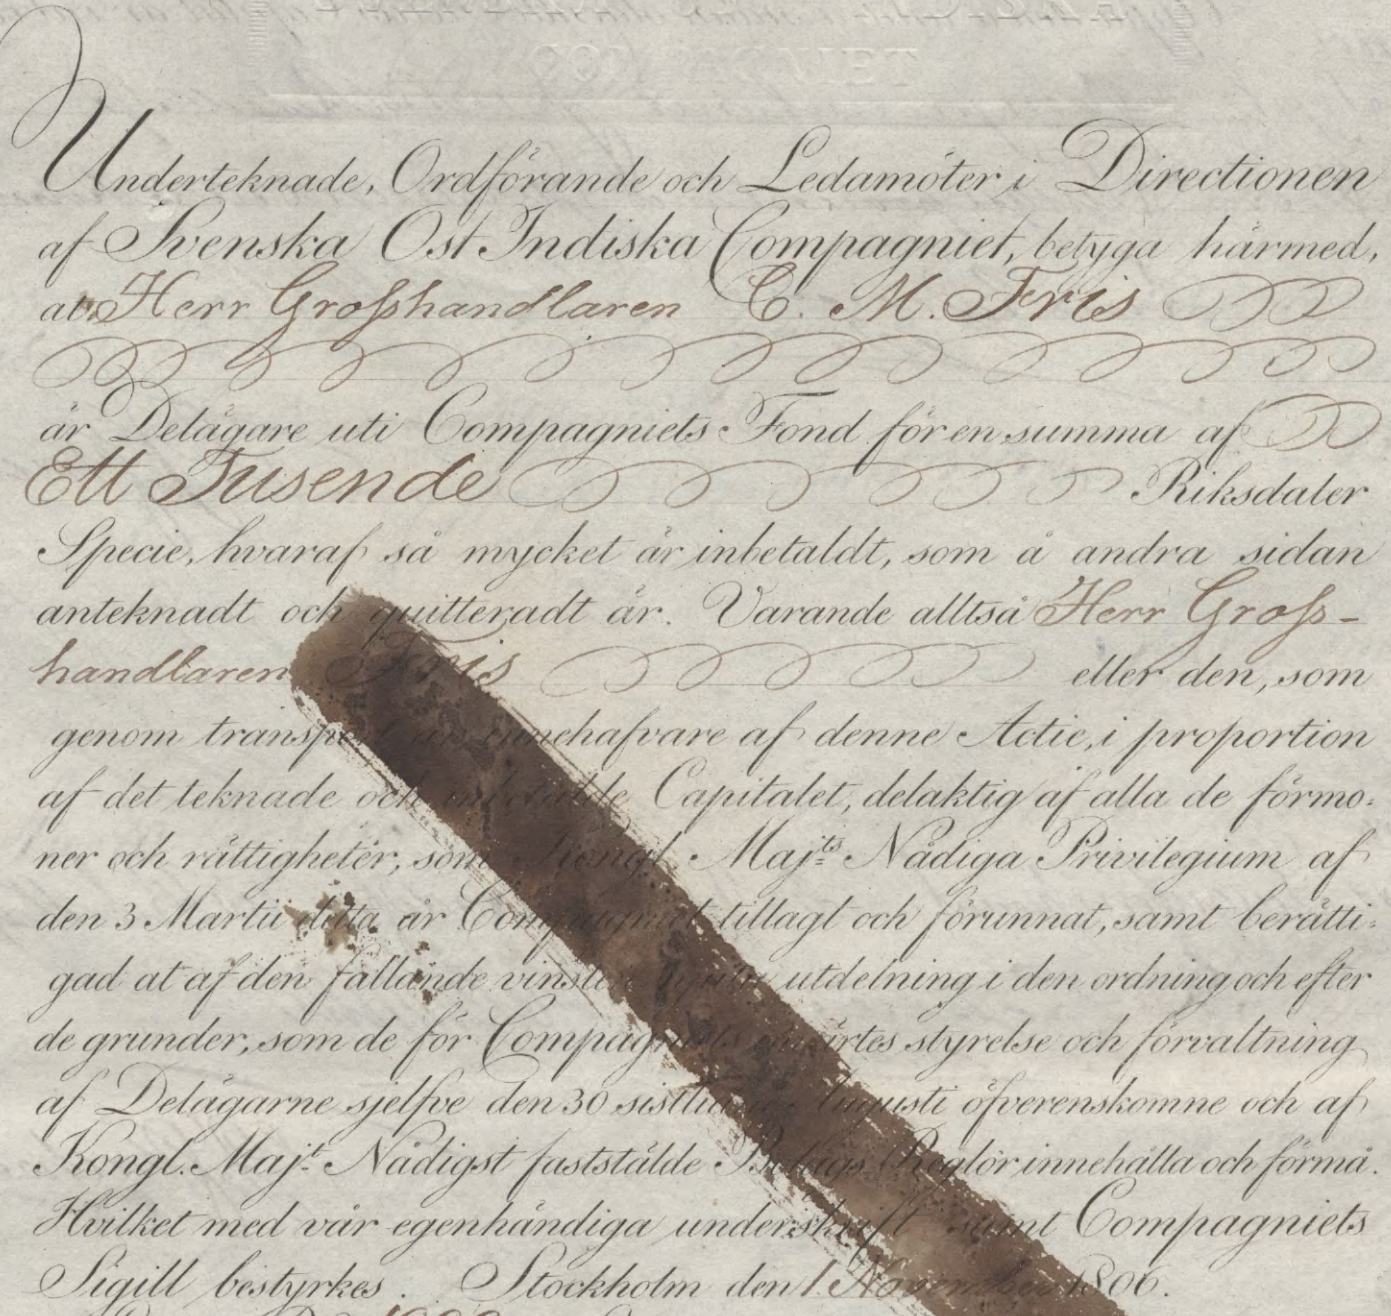 Underteknade, Ordförande och Ledamöter i Directionen
af Svenska Ost Indiska Compagniet, betyga härmed,
at Herr Grosshandlaren C. M. Fris
är Delägare uti Compagniets Fond för en summa af
Ett Tusende Riksdaler
Specie, hvaraf så mycket är inbetaldt, som å andra sidan
anteknadt och quitteradt är. Varande alltså Herr Gross-
handlaren Fris eller den, som
genom transport innehafvare af denne Actie, i proportion
af det teknade och Capitalet, delaktig af alla de förmo-
ner och rättigheter, som Kongl. Maj:ts Nådiga Privilegium af
den 3 Martii detta år Compagniet tillagt och förunnat, samt berätti-
gad at af den fallande vinsten utdelning i den ordning och efter
de grunder, som de för Compagniets styrelse och förvaltning
af Delägarne sjelfve den 30 sistlidne Augusti öfverenskomne och af
Kongl. Maj:t Nådigst faststälde Bolags Reglor innehålla och förmå.
Hvilket med vår egenhändiga underskrift samt Compagniets
Sigill bestyrkes. Stockholm den 1 November 1806.